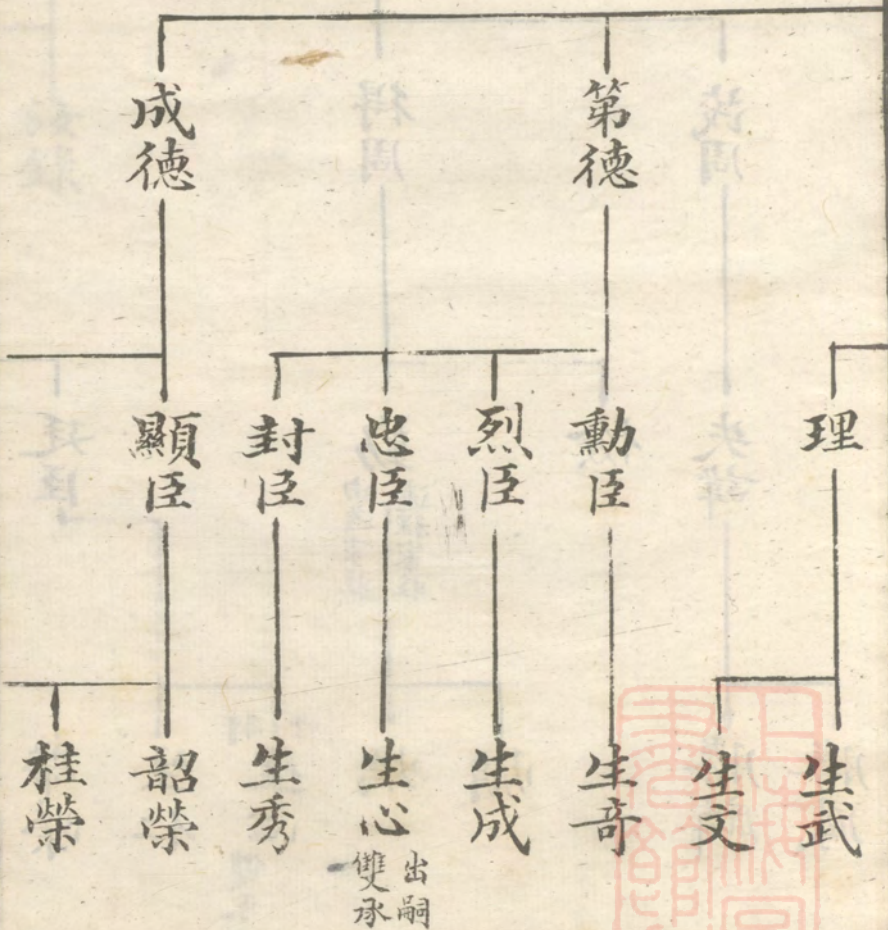 第德
成德
理
勳臣
烈臣
忠臣
封臣
顯臣
生武
生文
生奇
生成
生心
出嗣
雙承
生秀
韶榮
桂榮